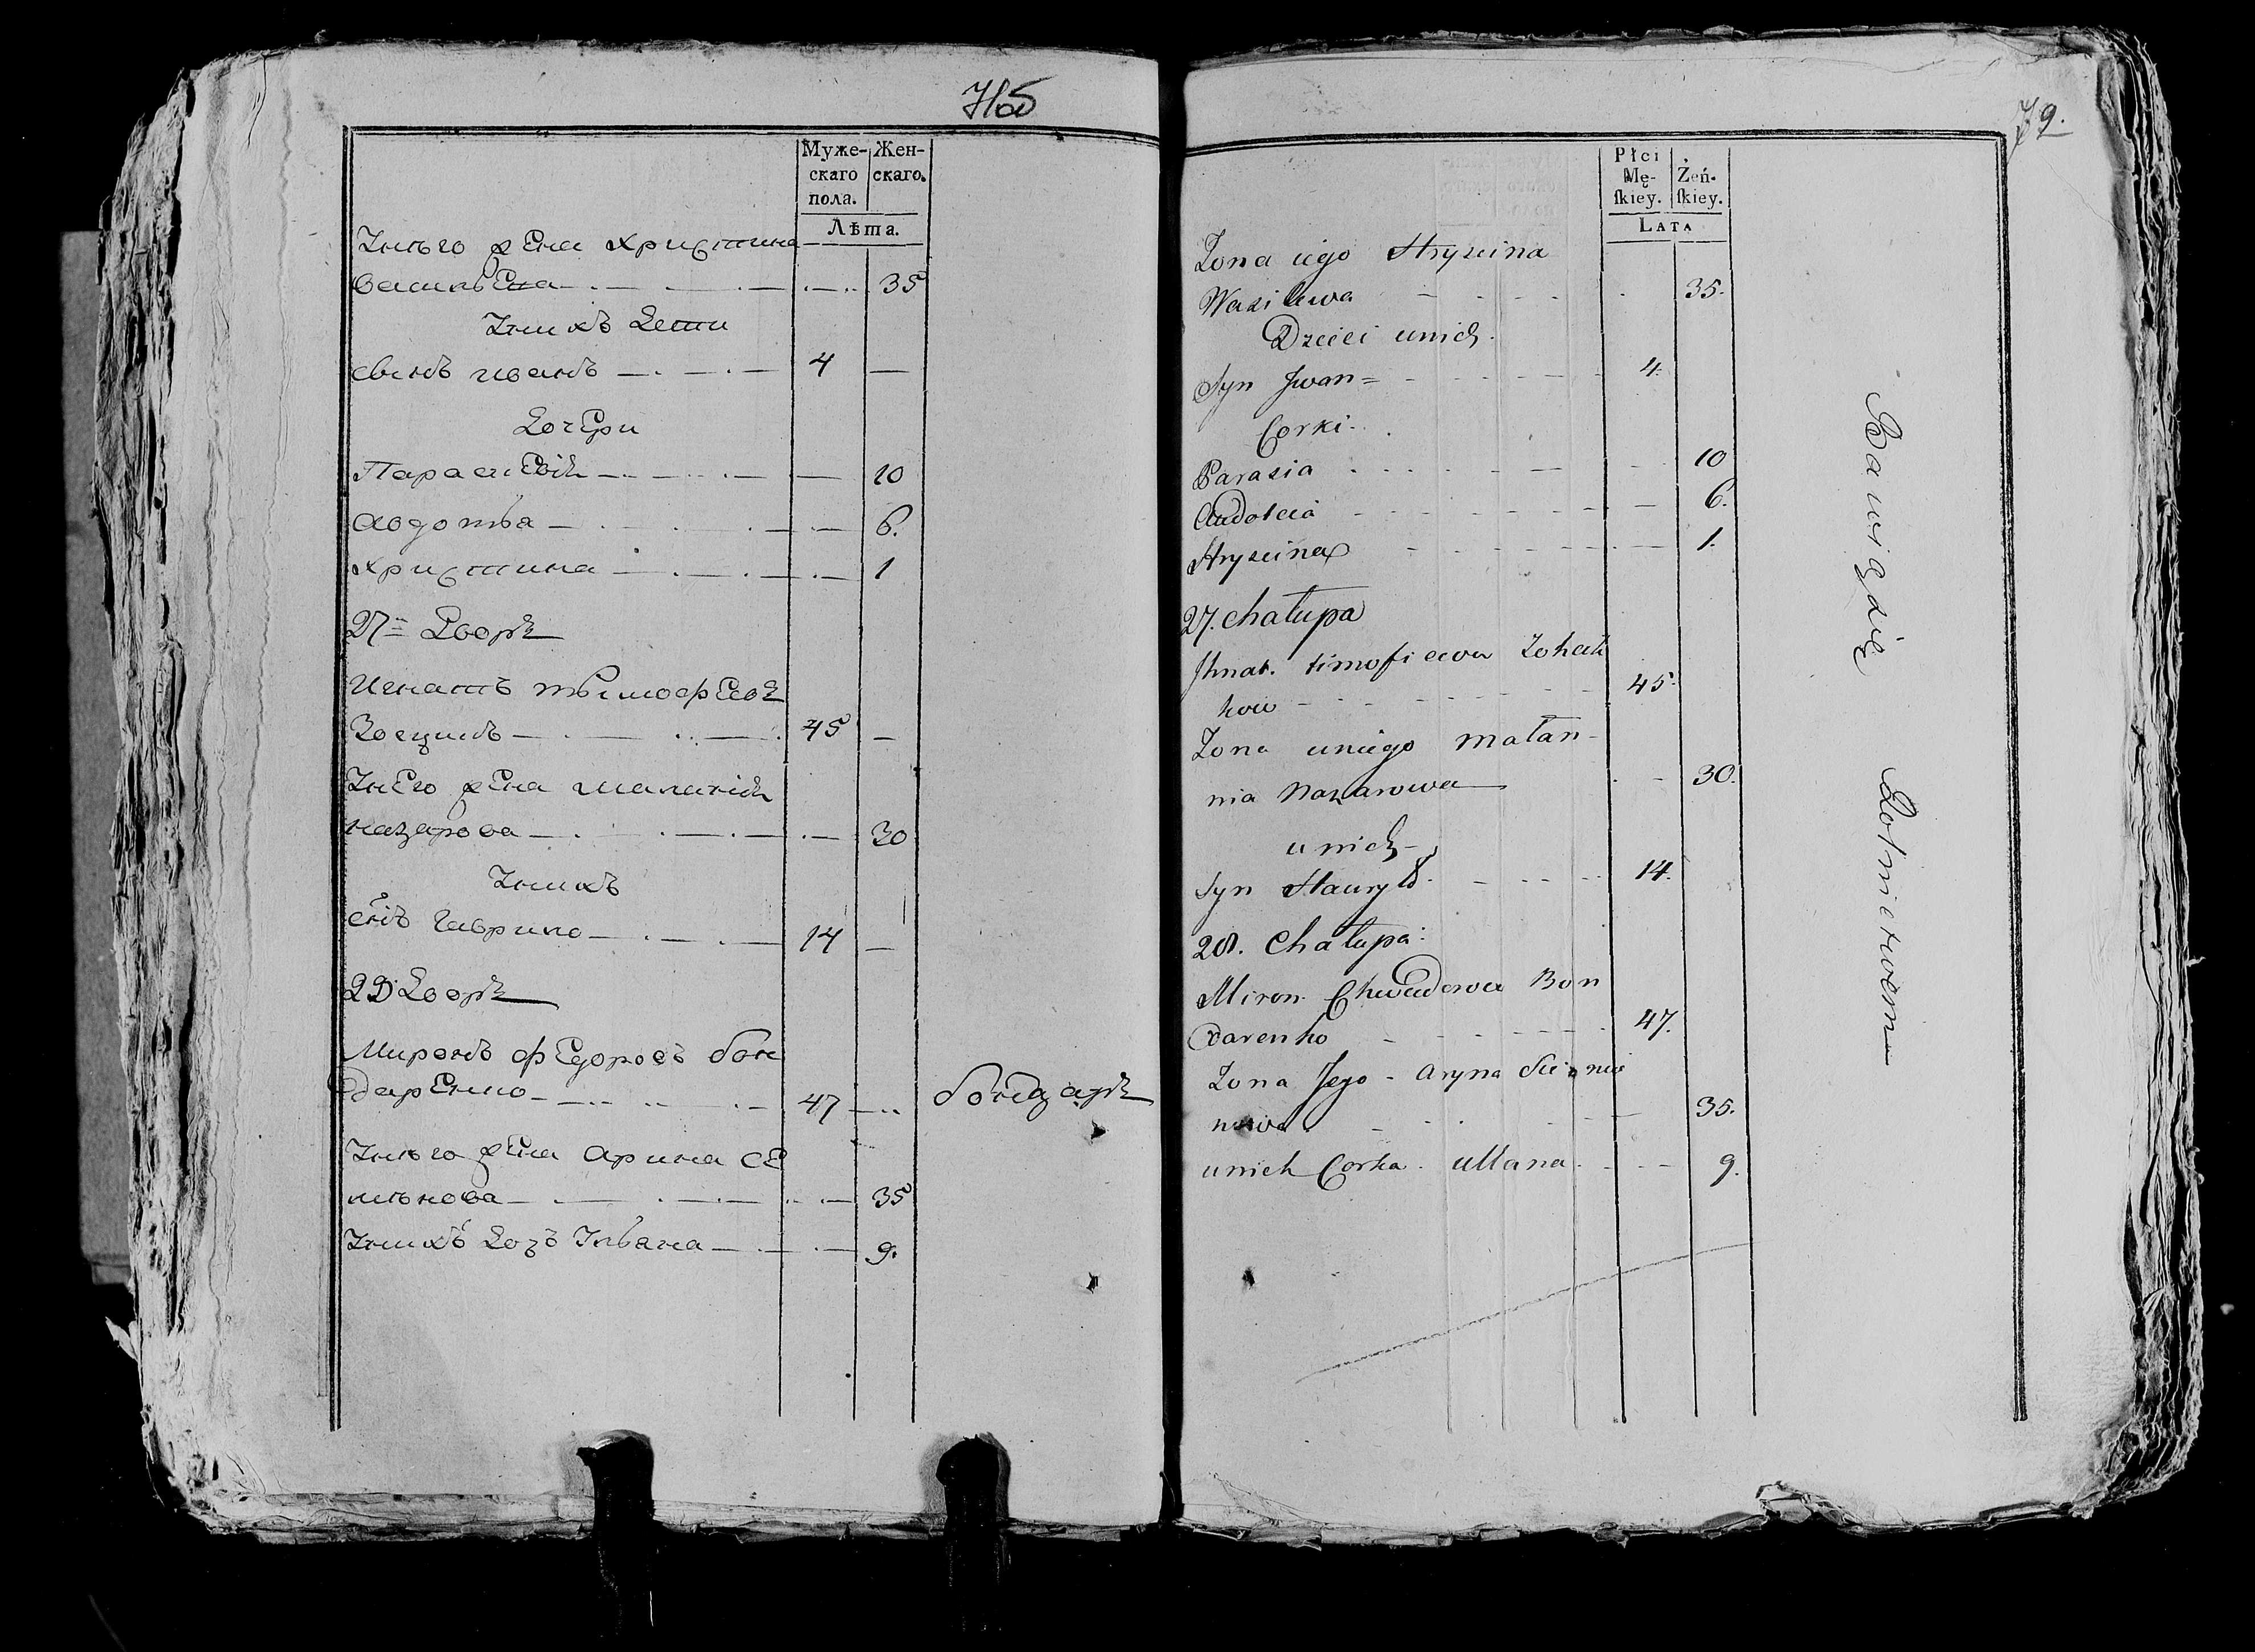 Муже-
скаго
пола.
Жен-
скаго.
Лѣта.
Унѣго жена христина
васильева 35
Унихъ дети
сынъ иванъ 4 —
дочери
Парасковія — 10
авдотья — 6.
христина — 1
27 дворъ
Игнатъ тымофеевъ
45 —
Унего жена маланія
назарова — 30
Унихъ
снъ гаврило 14 —
28 дворъ
Миронъ федоровъ бон
даренко 47 бондаръ
Унѣго жена арина се
менова — 35
Унихъ дочъ Ульяна — 9.
79.
Płci
Mę-
ſkiey.
Żeń-
ſkiey.
LATA
Zona iego Hryscina
Wasilewa 35.
Dzieci unich
Syn Jwan 4.
Corki
Parasia 10
Audotcia 6.
Hryscina 1.
27. chałupa
Jhnat. timofiewu
45.
Zona uniego małan-
nia Nazarowa 30.
unich
Syn Hauryło 14.
28. Chałupa
Miron Chwedorow Bon
darenko 47.
Zona Jego - Aryna Siemie
nowa 35.
unich Corka. ullana 9.